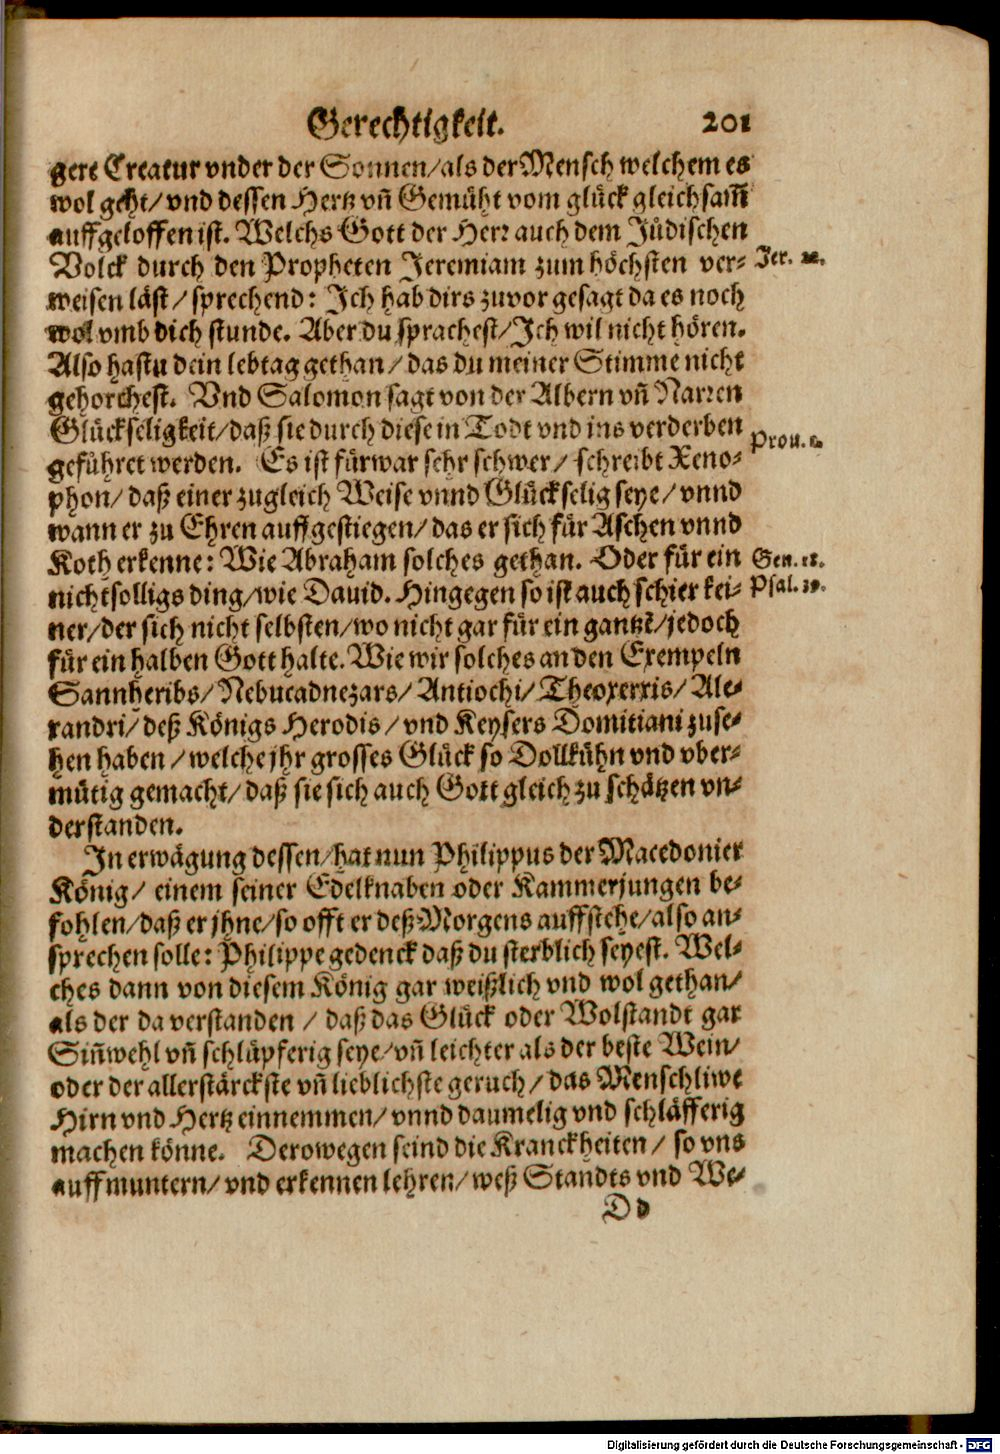 Gerechtigkeit. 201
gere Creatur vnder der Sonnen/als der Mensch welchem es
wol geht/vnd dessen Hertz vñ Gemüht vom glück gleichsam̃
auffgeloffen ist. Welchs Gott der Herr auch dem Jüdischen
Volck durch den Propheten Jeremiam zum höchsten ver- Jer. 22.
weisen läst/ sprechend: Ich hab dirs zuvor gesagt da es noch
wol vmb dich stunde. Aber du sprachest/Ich wil nicht hören.
Also hastu dein lebtag gethan/das du meiner Stimme nicht
gehorchest. Vnd Salomon sagt von der Albern vñ Narren
Glückseligkeit/daß sie durch diese in Todt vnd ins verderben
geführet werden. Es ist fürwar sehr schwer/ schreibt Xeno- Prou.
phon/daß einer zugleich Weise vnnd Glückselig seye/vnnd
wann er zu Ehren auffgestiegen/das er sich für Aschen vnnd
Koth erkenne: Wie Abraham solches gethan. Oder für ein Gen. 18.
nichtsolligs ding/wie Dauid. Hingegen so ist auch schier kei- Psal.
ner/der sich nicht selbsten/wo nicht gar für ein gantzē/jedoch
für ein halben Gott halte. Wie wir solches an den Exempeln
Sannheribs/Nebucadnezars/Antiochi/Theoxerxis/Ale-
xandri/deß Königs Herodis/vnd Keysers Domitiani zuse-
hen haben/welche jhr grosses Glück so Dollkühn vnd vber-
mütig gemacht/daß sie sich auch Gott gleich zu schätzen vn-
derstanden.
In erwägung dessen/hat nun Philippus der Macedonier
König/ einem seiner Edelknaben oder Kammerjungen be-
fohlen/daß er jhne/so offt er deß Morgens auffstehe/also an-
sprechen solle: Philippe gedenck daß du sterblich seyest. Wel-
ches dann von diesem König gar weißlich vnd wol gethan/
als der da verstanden / daß das Glück oder Wolstandt gar
Siñwehl vñ schlüpferig seye/vñ leichter als der beste Wein/
oder der allerstärckste vñ lieblichste geruch/das Menschliwe
Hirn vnd Hertz einnemmen/vnnd daumelig vnd schläfferig
machen könne. Derowegen seind die Kranckheiten/ so vns
auffmuntern/vnd erkennen lehren/weß Standts vnd We-
Dd
Digitalisierung gefördert durch die Deutsche Forschungsgemeinschaft - DFG